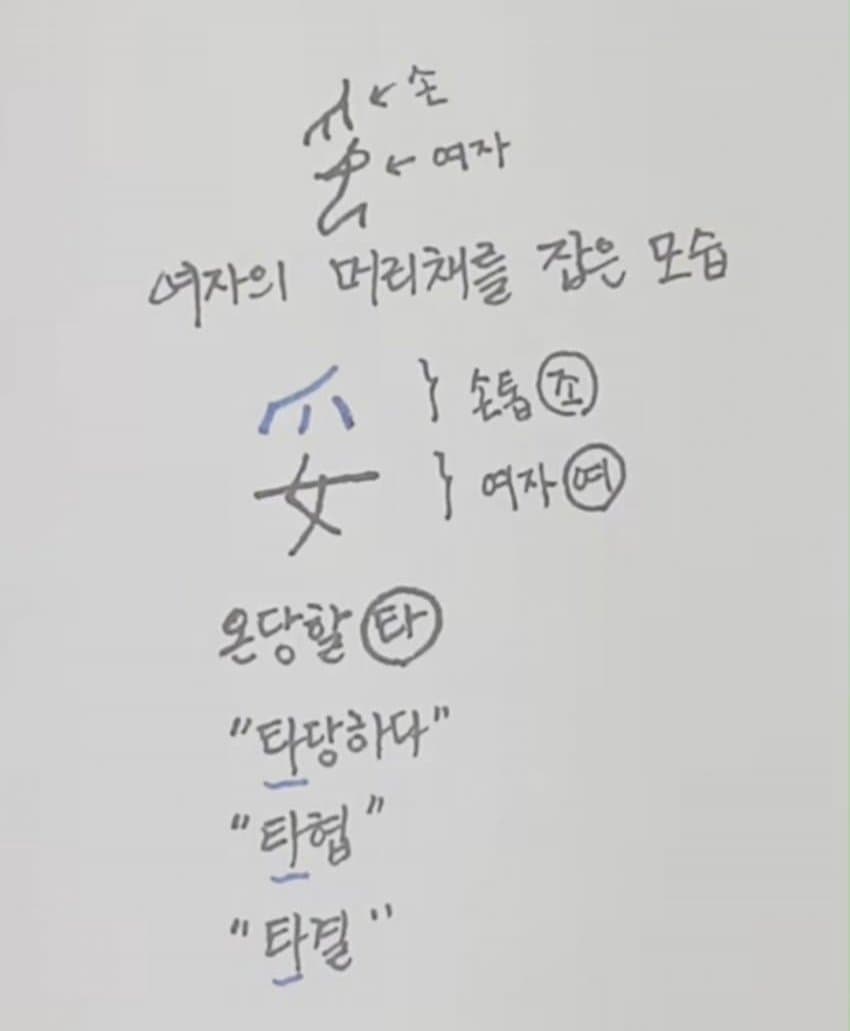 ← 손
← 여자
여자의 머리채를 잡은 모습
爫 } 손톱 조
女 } 여자 여
온당할 타
"타당하다"
"타협"
"타결"